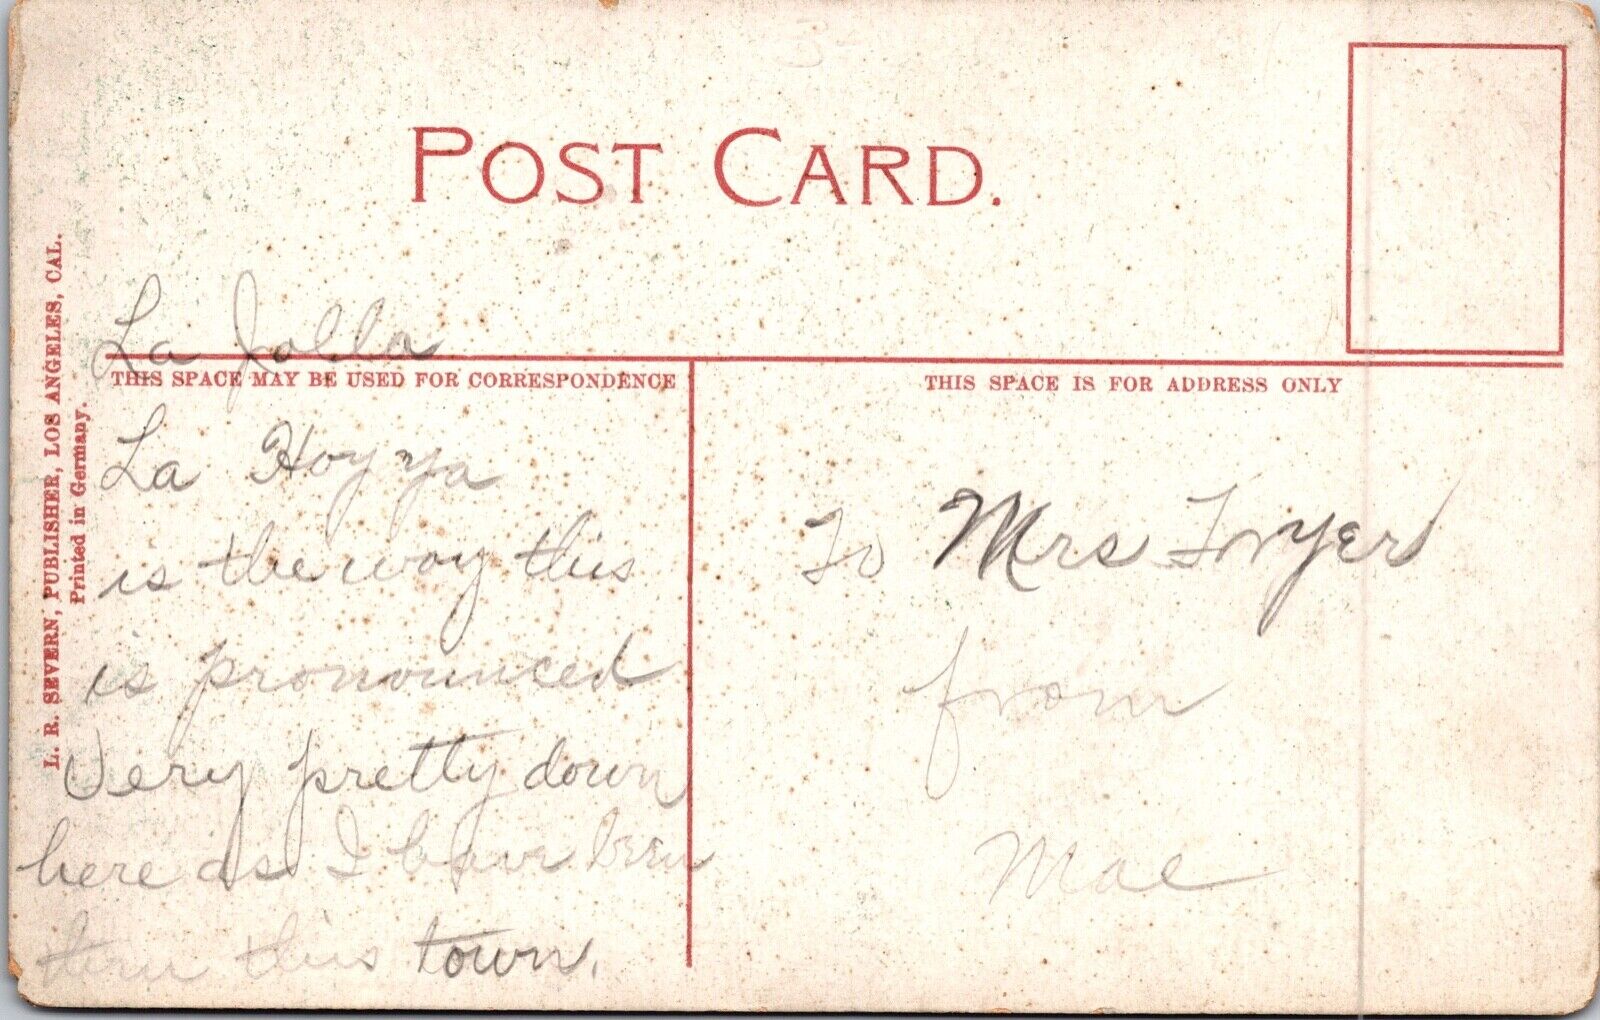 POST CARD.
La Jolla
THIS SPACE MAY BE USED FOR CORRESPONDENCE
La Hoy ya
is the way this
is pronounced
Very pretty down
here as I have been
thru this town.
THIS SPACE IS FOR ADDRESS ONLY
To Mrs Fryer
from
Mae
L. R. SEVERN, PUBLISHER, LOS ANGELES, CAL.
Printed in Germany.